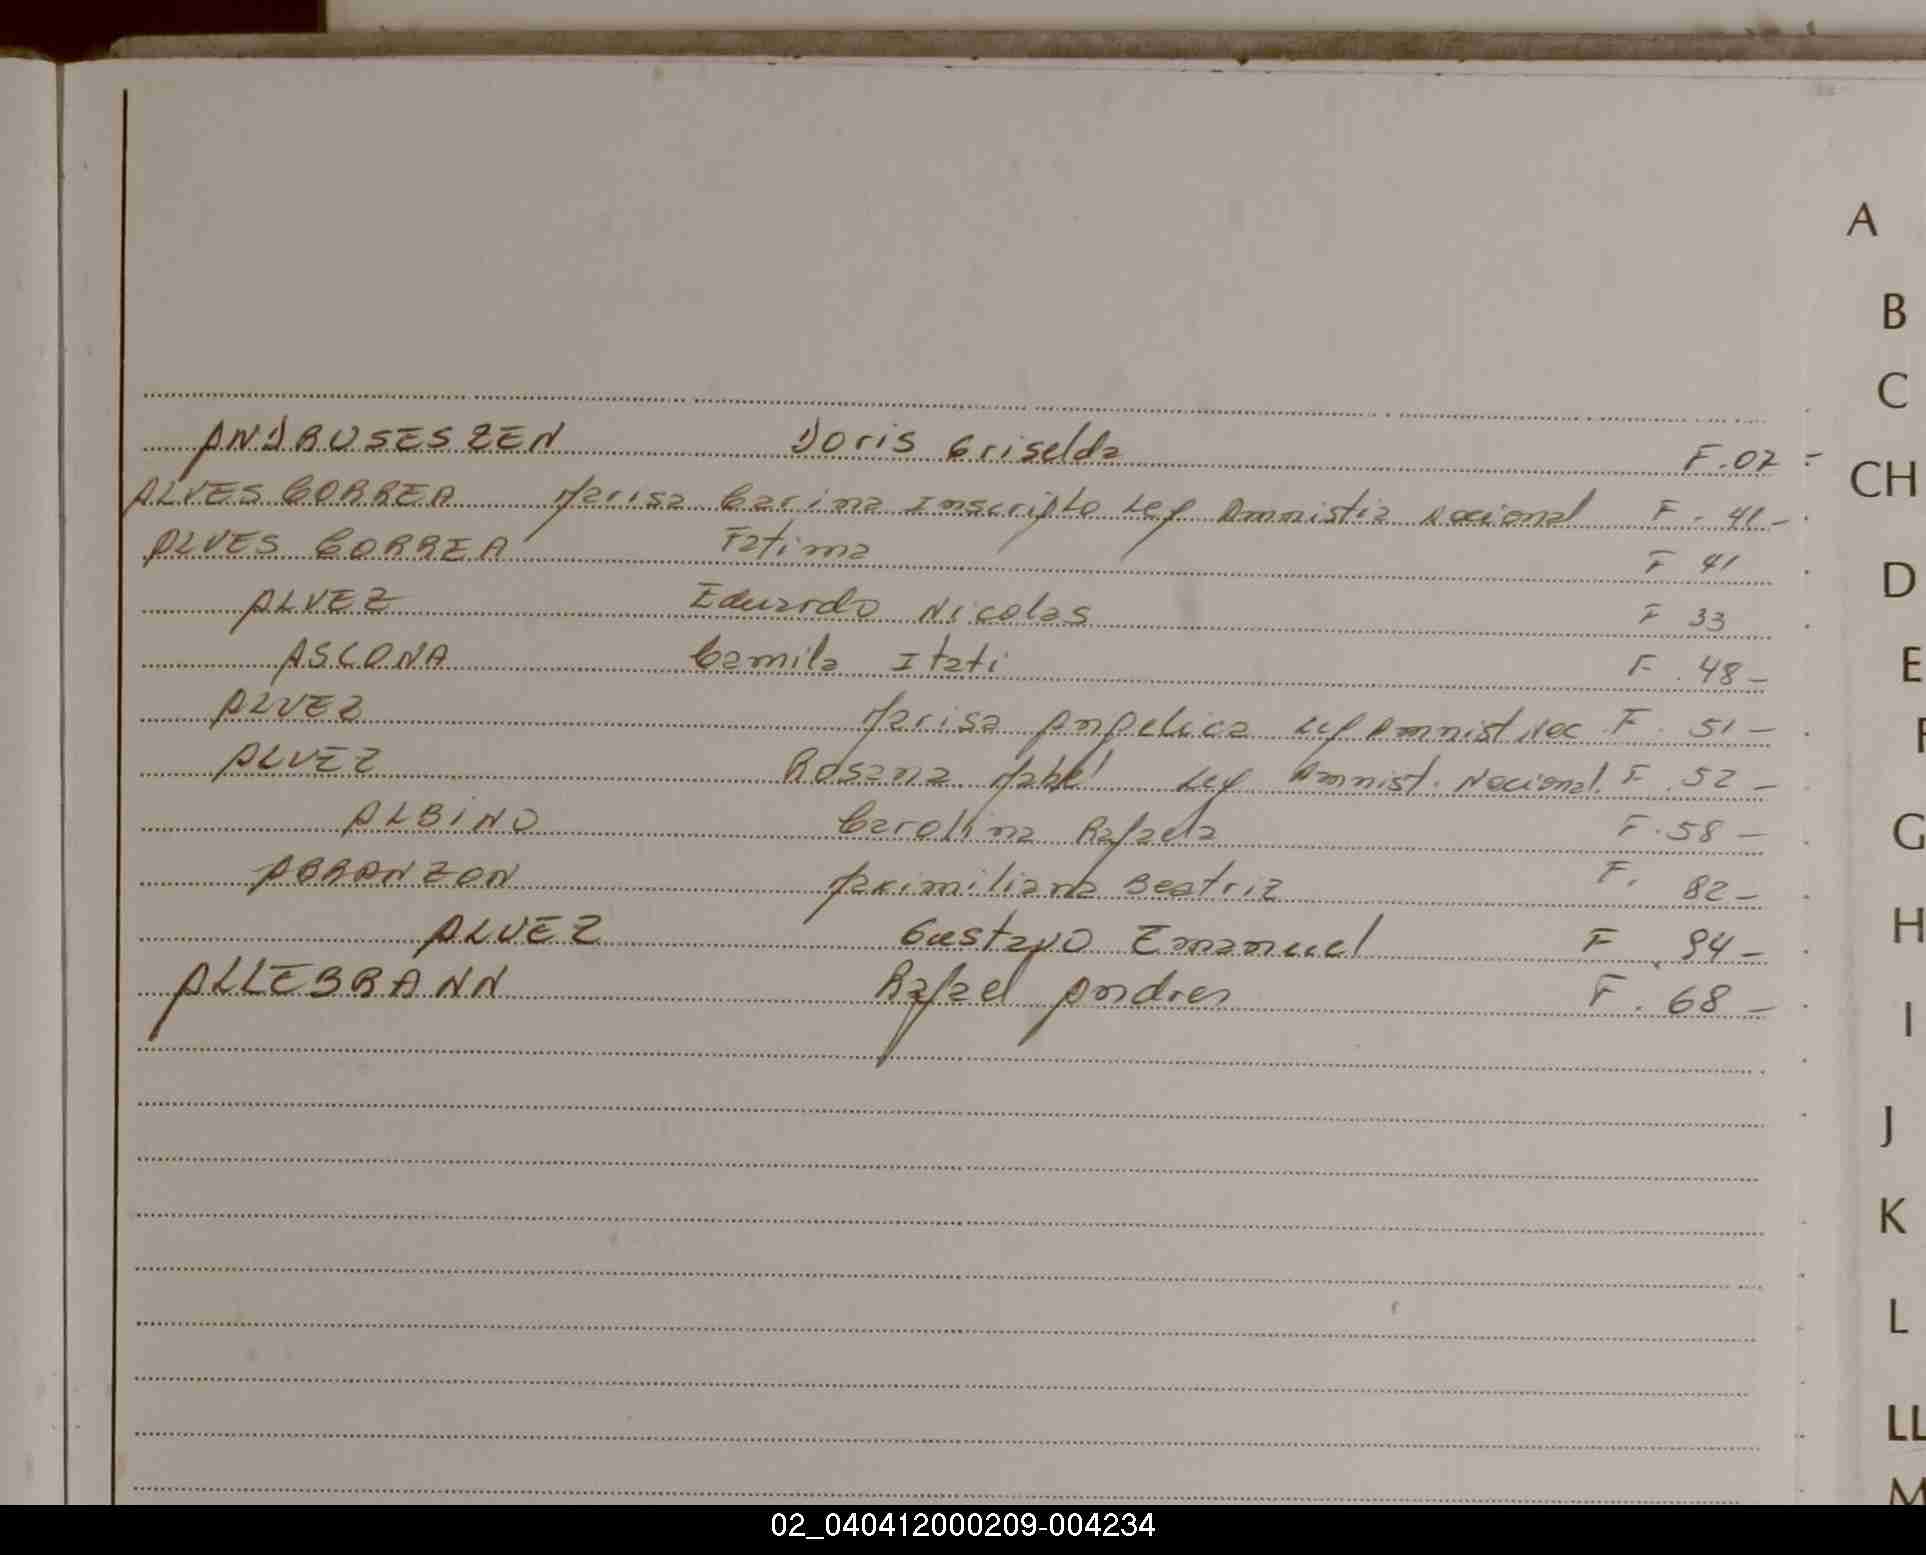 ANDRUSESZEN Doris Griselda F.02-
ALVES CORREA Marisa Carina Inscripto Ley Amnistia Nacional F. 41-
ALVES CORREA Fatima F 41
ALVEZ Eduardo Nicolas F 33
ASCONA Camila Itati F. 48-
ALVEZ Marisa Angelica Ley Amnist Nac F. 51-
ALVEZ Rosana Mabel Ley Amnist. Nacional. F. 52-
ALBINO Carolina Rafaela F.58-
ABRANZON Maximiliana Beatriz F. 82-
ALVEZ Gustavo Emanuel F 94-
ALLEBRANN Rafael Andres F. 68-
A
B
C
CH
D
E
F
G
H
I
J
K
L
LL
M
02_040412000209-004234